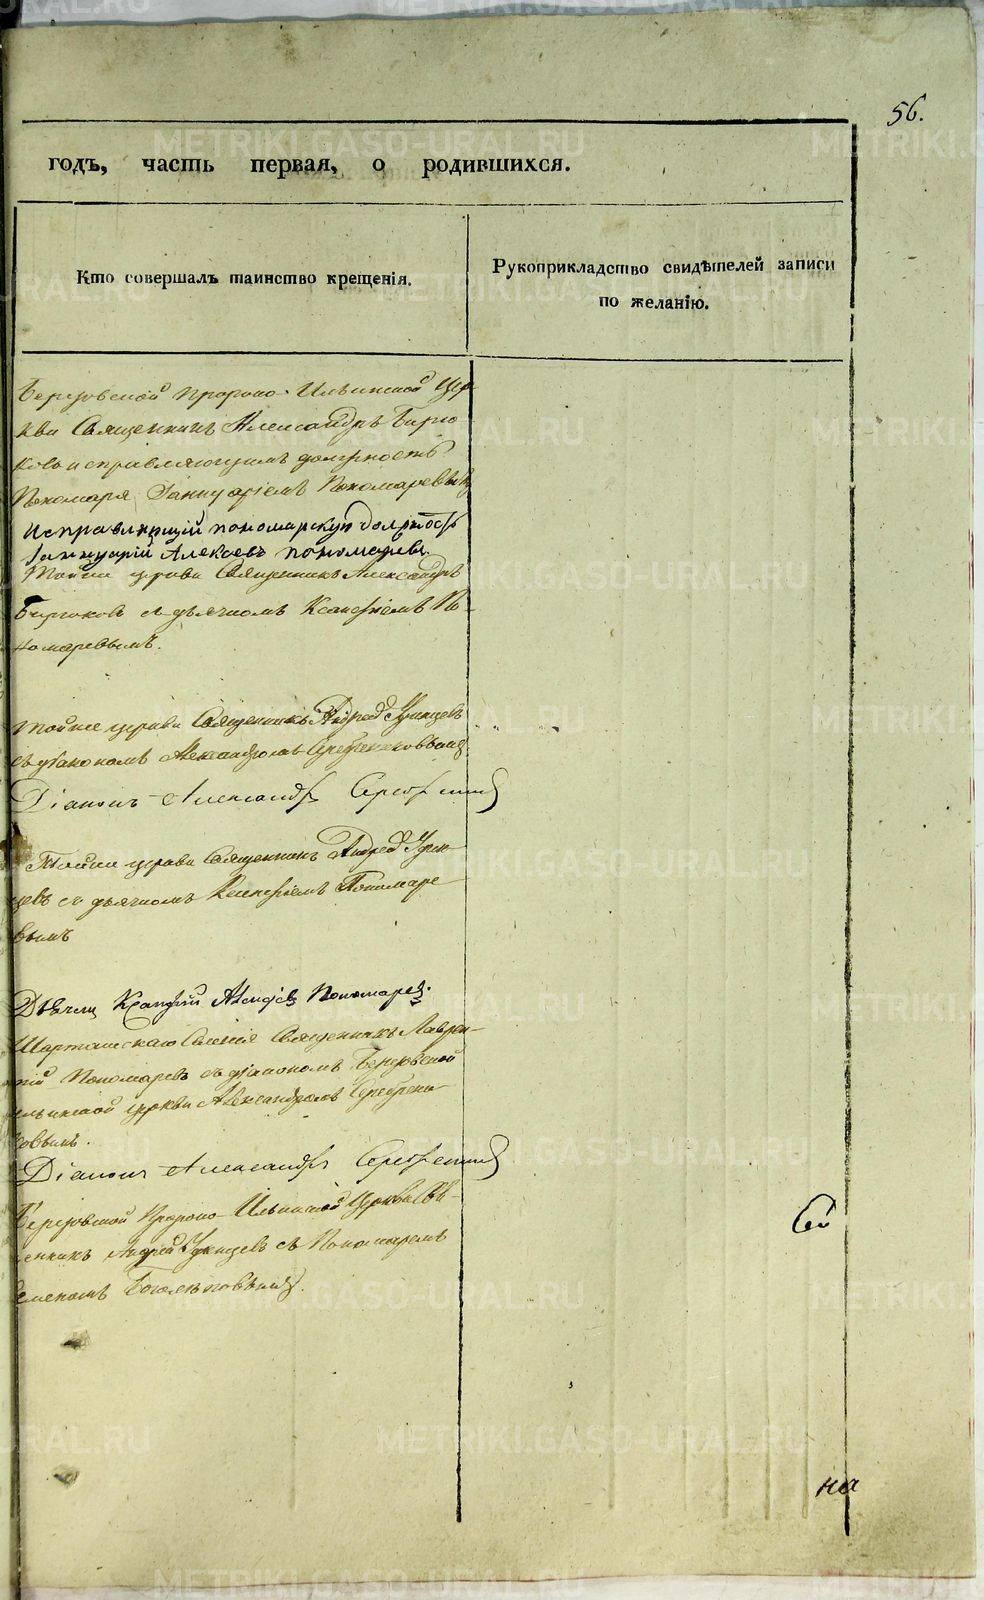 56.
годъ, часть первая, о родившихся.
Кто совершалъ таинство крещенія.
Рукоприкладство свидѣтелей записи
по желанію.
Березовской Пророко-Ильинской Цер
кви Священникъ Александръ Бирю
ковъ исправляющимъ должность
Пономаря Іаннуаріемъ Пономаревымъ
Исправляющій пономарскую должность
Іаннуарій Алексѣевъ Пономаревъ.
Тойже церкви Священникъ Александръ
Бирюковъ съ дьячкомъ Ксанфіемъ По-
номаревымъ.
Тойже церкви Священникъ Андрей Удинцевъ
съ діакономъ Александромъ Серебрениковымъ
Діаконъ Александръ
Тойже церкви Священникъ Андрей Удин-
цевъ съ дьячкомъ Ксанфіемъ Пономаре-
вымъ
Дьячекъ Ксанфій Пономаревъ.
Шарташскаго Селенія Священникъ Лаврен-
тій Пономаревъ съ діакономъ Березовской
Ильинской церкви Александромъ Серебрени-
ковымъ.
Діаконъ Александръ
Березовской Пророко-Ильинской Церкви Свя-
щенникъ Андрей Удинцевъ съ Пономаремъ
Семеномъ Боголѣповымъ.
на
METRIKI.GASO-URAL.RU